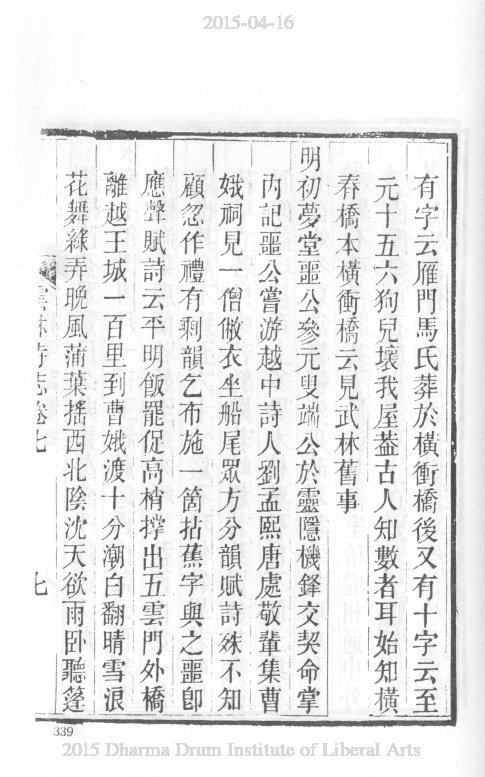 2015-04-16
有字云雁門馬氏葬於橫衝橋後又有十字云至
元十五六狗兒壞我屋葢古人知數者耳始知橫
春橋本橫衝橋云見武林舊事
明初夢堂噩公參元叟端公於靈隱機鋒交契命掌
內記噩公嘗游越中詩人劉孟熙唐處敬輩集曹
娥祠見一僧儌衣坐船尾眾方分韻賦詩殊不知
顧忽作禮有剩韻乞布施一箇拈蕉字與之噩卽
應聲賦詩云平明飯罷促高梢撑出五雲門外橋
離越王城一百里到曹娥渡十分潮白翻晴雪浪
花舞綠弄晚風蒲葉搖西北陰沈天欲雨卧聽篷
寺志卷七
七
339
2015 Dharma Drum Institute of Liberal Arts